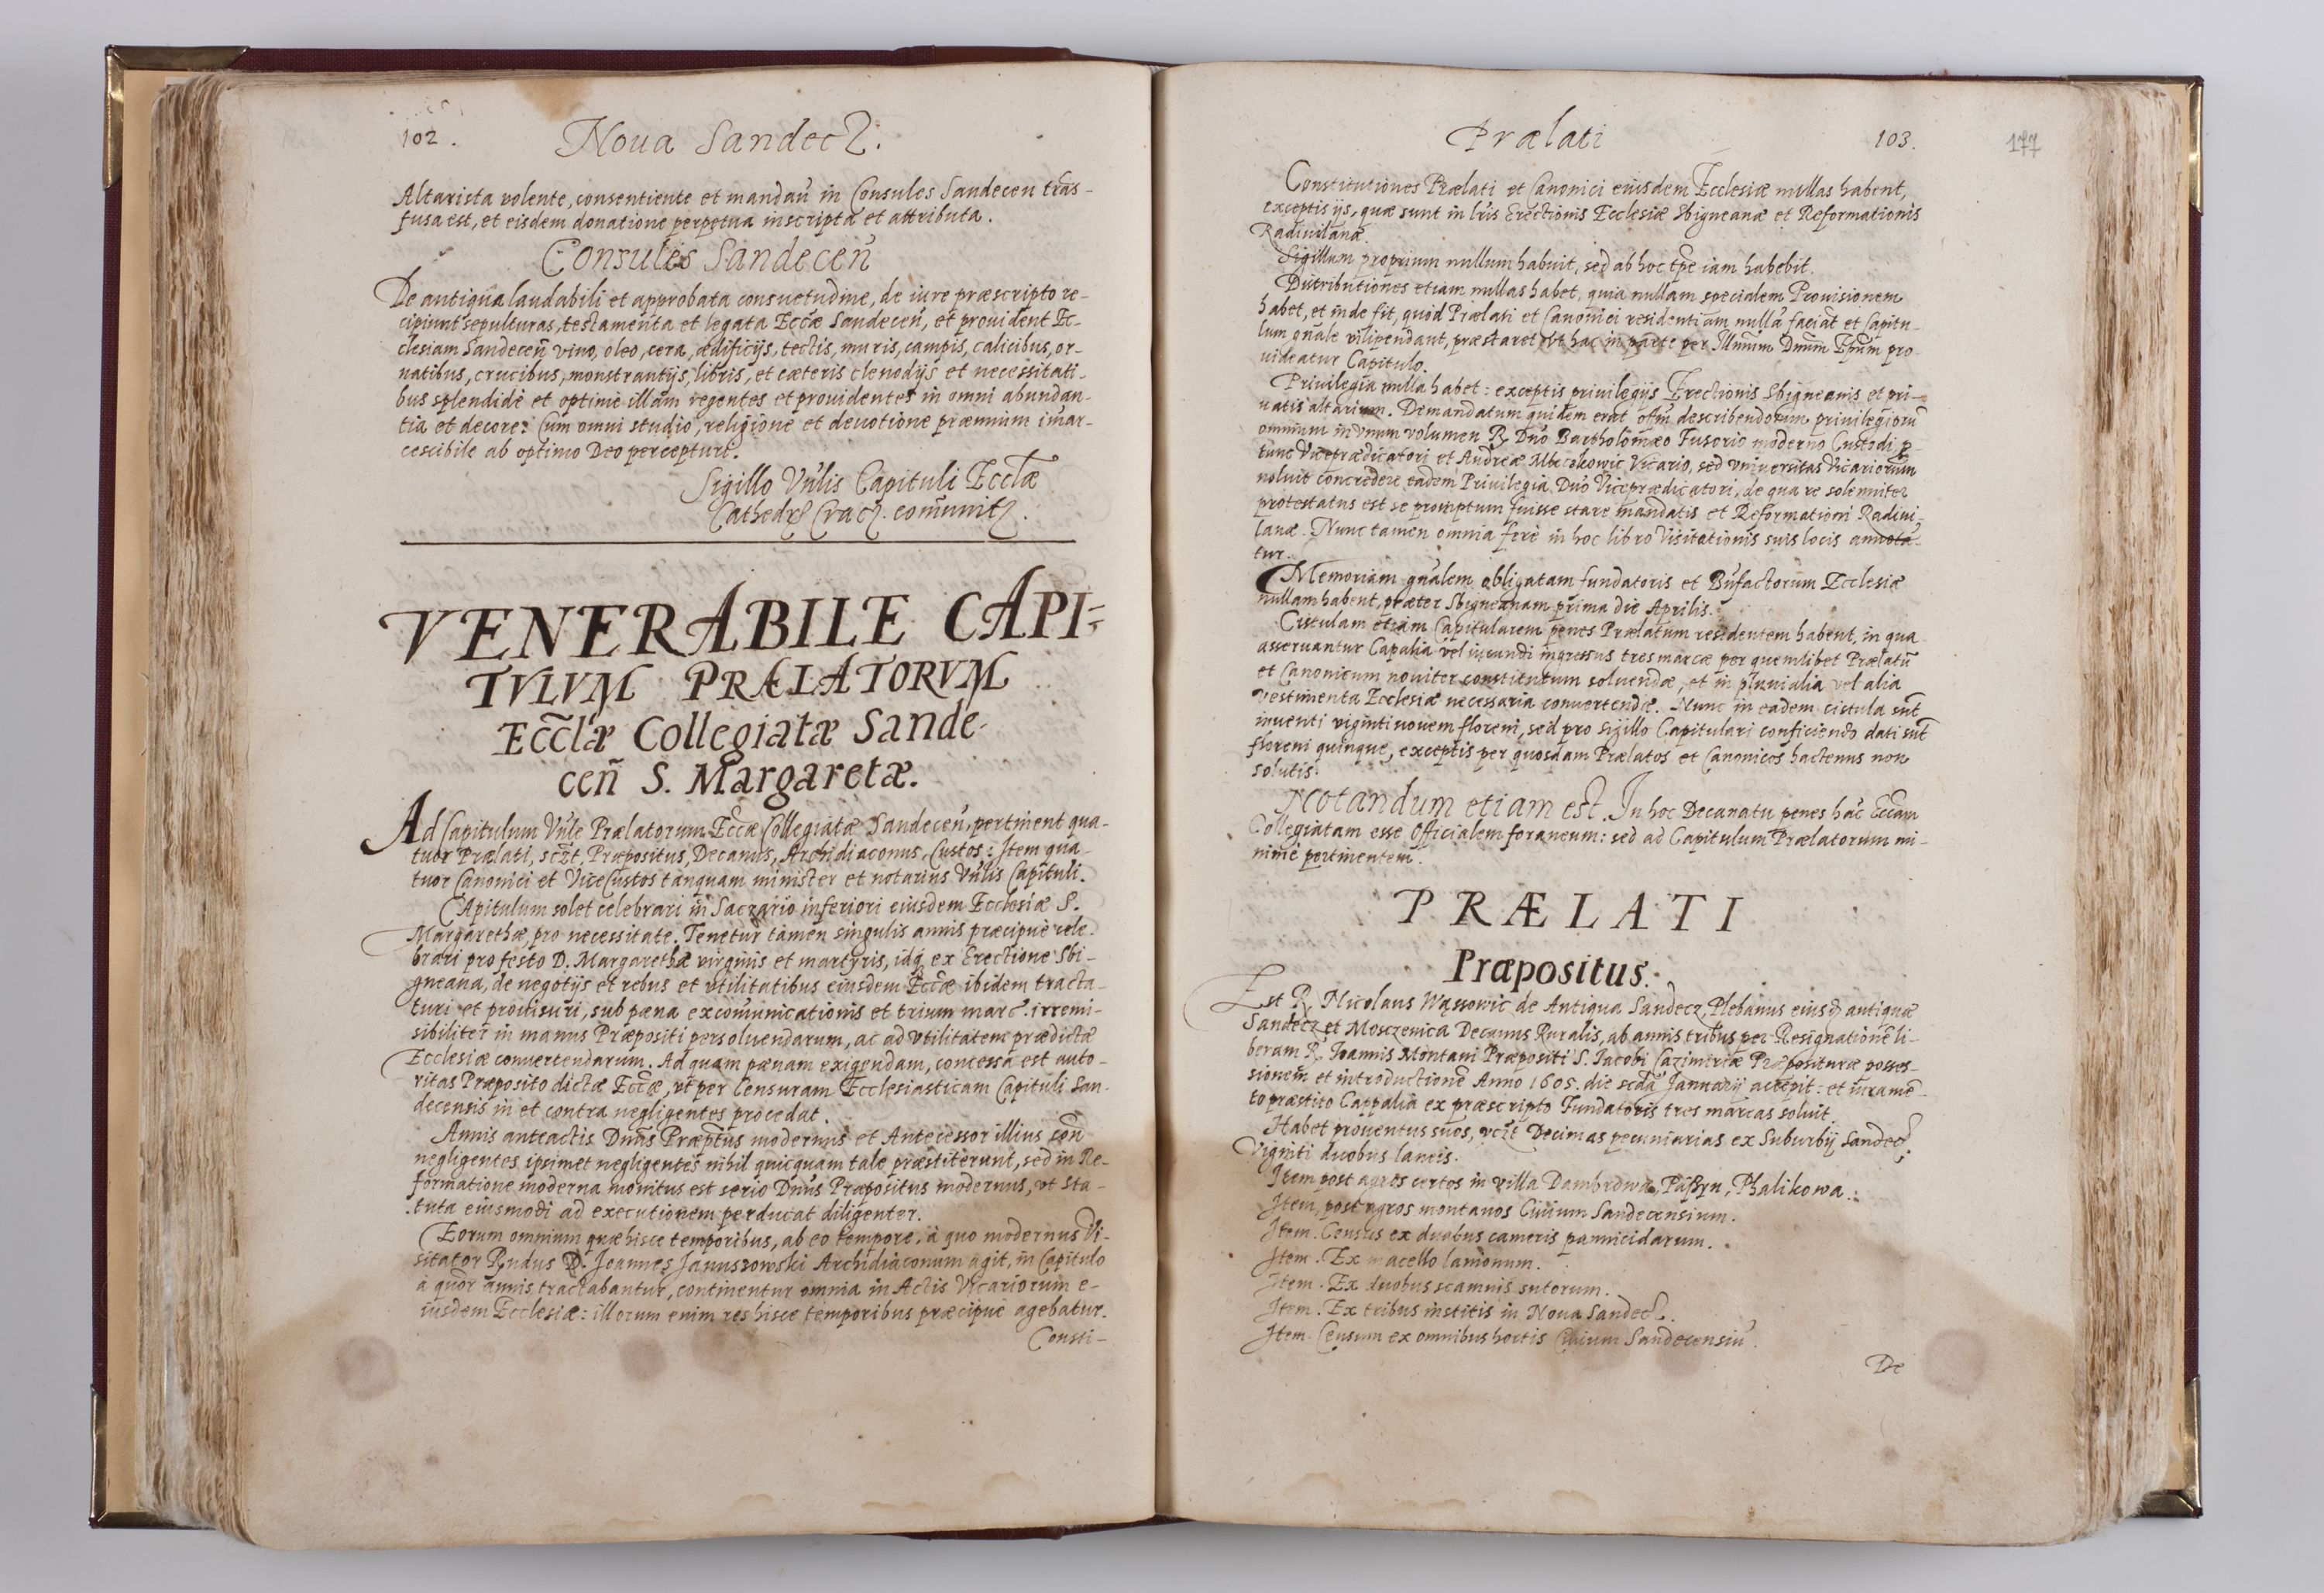 102.
Noua Sandecz.
Altarista volente, consentiente et mandan̄ in Consules Sandecen̄ trās-
fusa est, et eisdem donatione perpetua inscripta et attributa.
Consules Sandecen̄
De antiqua laudabili et approbata consuetudine, de iure præscripto re-
cipiunt sepulturas, testamenta et legata Eccæ Sandecen̄, et prouident Ec-
clesiam Sandecen̄ vino, oleo, cera, ædificijs, tectis, muris, campis, calicibus, or-
natibus, crucibus, monstrantijs, libris, et cæteris clenodijs et necessitati-
bus splendidè et optimè illam regentes et prouidentes in omni abundan-
tia et decore: Cum omni studio, religione et deuotione præmium imar-
cescibile ab optimo Deo percepturi.
Sigillo Vn̄lis Capituli Ecclæ
Cathedr Crac. com̄unit
VENERABILE CAPI=
TVLVM PRÆLATORVM
Eccl̄æ Collegiatæ Sande-
cen̄ S. Margaretæ.
Ad Capitulum Vn̄le Prælatorum Eccæ Collegiatæ Sandecen̄, pertinent qua-
tuor Prælati, sczt, Præpositus, Decanus, Archidiaconus, Custos: Item qua-
tuor Canonici et ViceCustos tanquam minister et notarius Vn̄lis Capituli.
CApitulum solet celebrari in Sacrario inferiori eiusdem Ecclesiæ S.
Margarethæ, pro necessitate. Tenetur tamen singulis annis præcipuè cele-
brari pro festo D. Margarethæ virginis et martyris, idq ex Erectione Sbi-
gneana, de negotijs et rebus et vtilitatibus eiusdem Eccæ ibidem tracta-
turi et prouisuri, sub pæna excom̄unicationis et trium marc. irremi-
sibiliter in manus Præpositi persoluendarum, ac ad vtilitatem prædictæ
Ecclesiæ conuertendarum. Ad quam pænam exigendam, concessa est auto-
ritas Præposito dictæ Eccæ, vt per Censuram Ecclesiasticam Capituli San-
decensis in et contra negligentes procedat.
Annis anteactis Dn̄us Præptus modernus et Antecessor illius con̄
negligentes ipsimet negligentes nihil quicquam tale præstiterunt, sed in Re-
formatione moderna monitus est serio Dn̄us Præpositus modernus, vt sta-
tuta eiusmodi ad executionem perducat diligenter.
Eorum omnium quæ hisce temporibus, ab eo tempore, à quo modernus Vi-
sitator Rndus D. Joannes Januszowski Archidiaconum agit, in Capitulo
à quor annis tractabantur, continentur omnia in Actis Vicariorum e-
iusdem Ecclesiæ: illorum enim res hisce temporibus præcipuè agebatur.
Consti-
Prælati
103.
177
Constitutiones Prælati et Canonici eiusdem Ecclesiæ nullas habent,
exceptis ijs, quæ sunt in lr̄is Erectionis Ecclesiæ Sbigneanæ et Reformationis
Radiuilanæ.
Sigillum proprium nullum habuit, sed ab hoc tp̄e iam habebit.
Distributiones etiam nullas habet, quia nullam specialem Prouisionem
habet, et inde fit, quòd Prælati et Canonici residentiam nullā faciāt et Capitu-
lum gn̄ale vilipendant, præstaret vt hac in parte per Illm̄um Dn̄um Ep̄um pro-
uideatur Capitulo.
Priuilegia nulla habet: exceptis priuilegijs Erectionis Sbigneanis et pri-
uatis altarium. Demandatum quidem erat offm describendorum priuilegiorū
omnium in vnum volumen R. Dn̄o Bartholomæo Fusorio moderno Custodi p
tunc Vicepredicatori et Andreæ Mleczkowic Vicario, sed vniuersitas Vicariorum
noluit concredere eadem Priuilegia Dn̄o Viceprædicatori, de qua re solenniter
protestatus est se promptum fuisse stare mandatis et Reformationi Radiui-
lanæ. Nunc tamen omnia ferè in hoc libro Visitationis suis locis annotā-
tur.
Memoriam gn̄alem obligatam fundatoris et Bn̄factorum Ecclesiæ
nullam habent, præter Sbigneanam prima die Aprilis.
Cistulam etiam Capitularem penes Prælatum residentem habent, in qua
asseruantur Capalia vel iucundi ingressus tres marcæ per quemlibet Prælatū
et Canonicum nouiter constitutum soluendæ, et in pluuialia vel alia
vestimenta Ecclesiæ necessaria conuertendæ. Nunc in eadem cistula sūt
inuenti viginti nouem floreni, sed pro sigillo Capitulari conficiendo dati sūt
floreni quinque, exceptis per quosdam Prælatos et Canonicos hactenus non
solutis.
Notandum etiam est. In hoc Decanatu penes hāc Eccam
Collegiatam esse Officialem foraneum: sed ad Capitulum Prælatorum mi-
nimè pertinentem.
PRÆLATI
Præpositus.
Est R. Nicolaus Wąssowic de Antiqua Sandecz, Plebanus eiusd antiquæ
Sandecz et Mosczenica Decanus Ruralis, ab annis tribus per Resignationē li-
beram R. Joannis Montani Præpositi S. Jacobi Cazimiriæ Præposituræ posses-
sionem et introductionē Anno 1605. die scdā Januarij accepit: et iuramē-
to præstito Cappalia ex præscripto Fundatoris tres marcas soluit.
Habet prouentus suos, vczt Decimas pecuniarias ex Suburbij Sandecz
Viginti duobus laneis.
Item post agros certos in villa Dambrowa, Pąßyn, Phalikowa.
Item, post agros montanos Ciuium Sandecensium.
Item. Census ex duobus cameris pannicidarum.
Item. Ex macello lanionum.
Item. Ex duobus scamnis sutorum.
Item. Ex tribus institis in Noua Sandecz.
Item. Censum ex omnibus hortis Ciuium Sandecensiū.
De